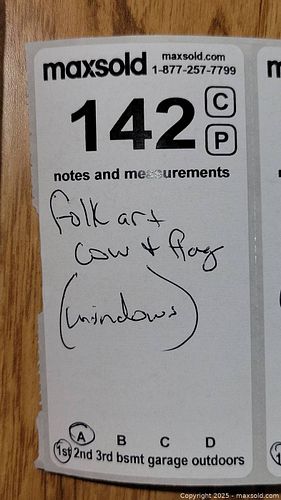 maxsold maxsold.com
1-877-257-7799
142 C
P
notes and measurements
folk art
cow + flag
(windows)
A B C D
1st 2nd 3rd bsmt garage outdoors
Copyright 2025 - maxsold.com